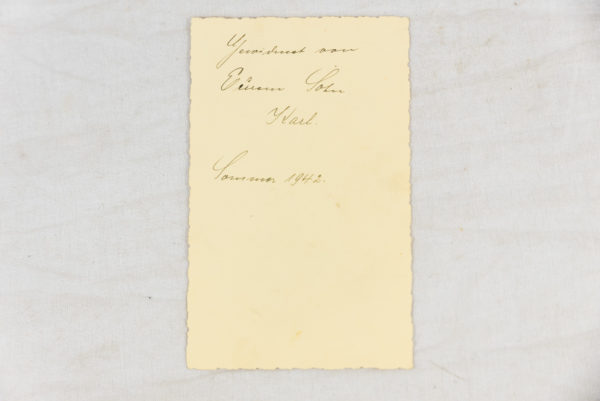 Gewidmet von
Eurem Sohn
Karl.
Sommer 1942.